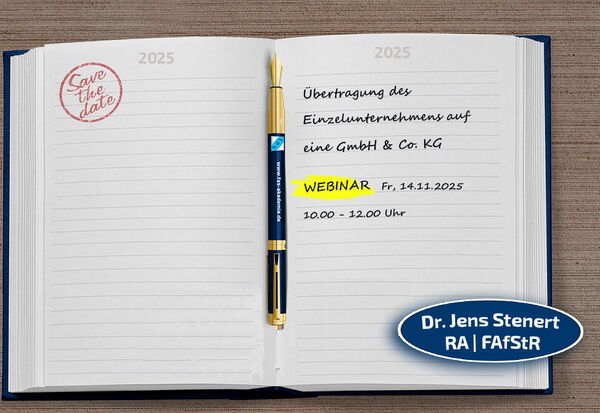 2025
Save
the
date
2025
Übertragung des
Einzelunternehmens auf
eine GmbH & Co. KG
WEBINAR Fr, 14.11.2025
10.00 - 12.00 Uhr
www.fas-akademie.de
Dr. Jens Stenert
RA | FAfStR